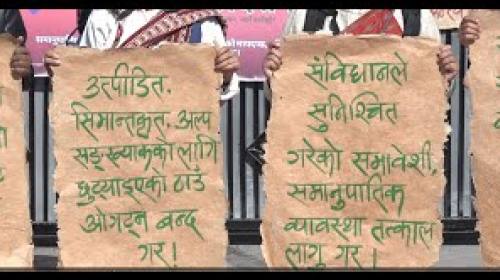 उत्पीडित,
सिमान्तकृत, अल्प
सङ्ख्यकको लागि
छुट्याइएको ठाउँ
ओगट्न बन्द
गर!
संविधानले
सुनिश्चित
गरेको समावेशी,
समानुपातिक
व्यावस्था तत्काल
लागु गर।